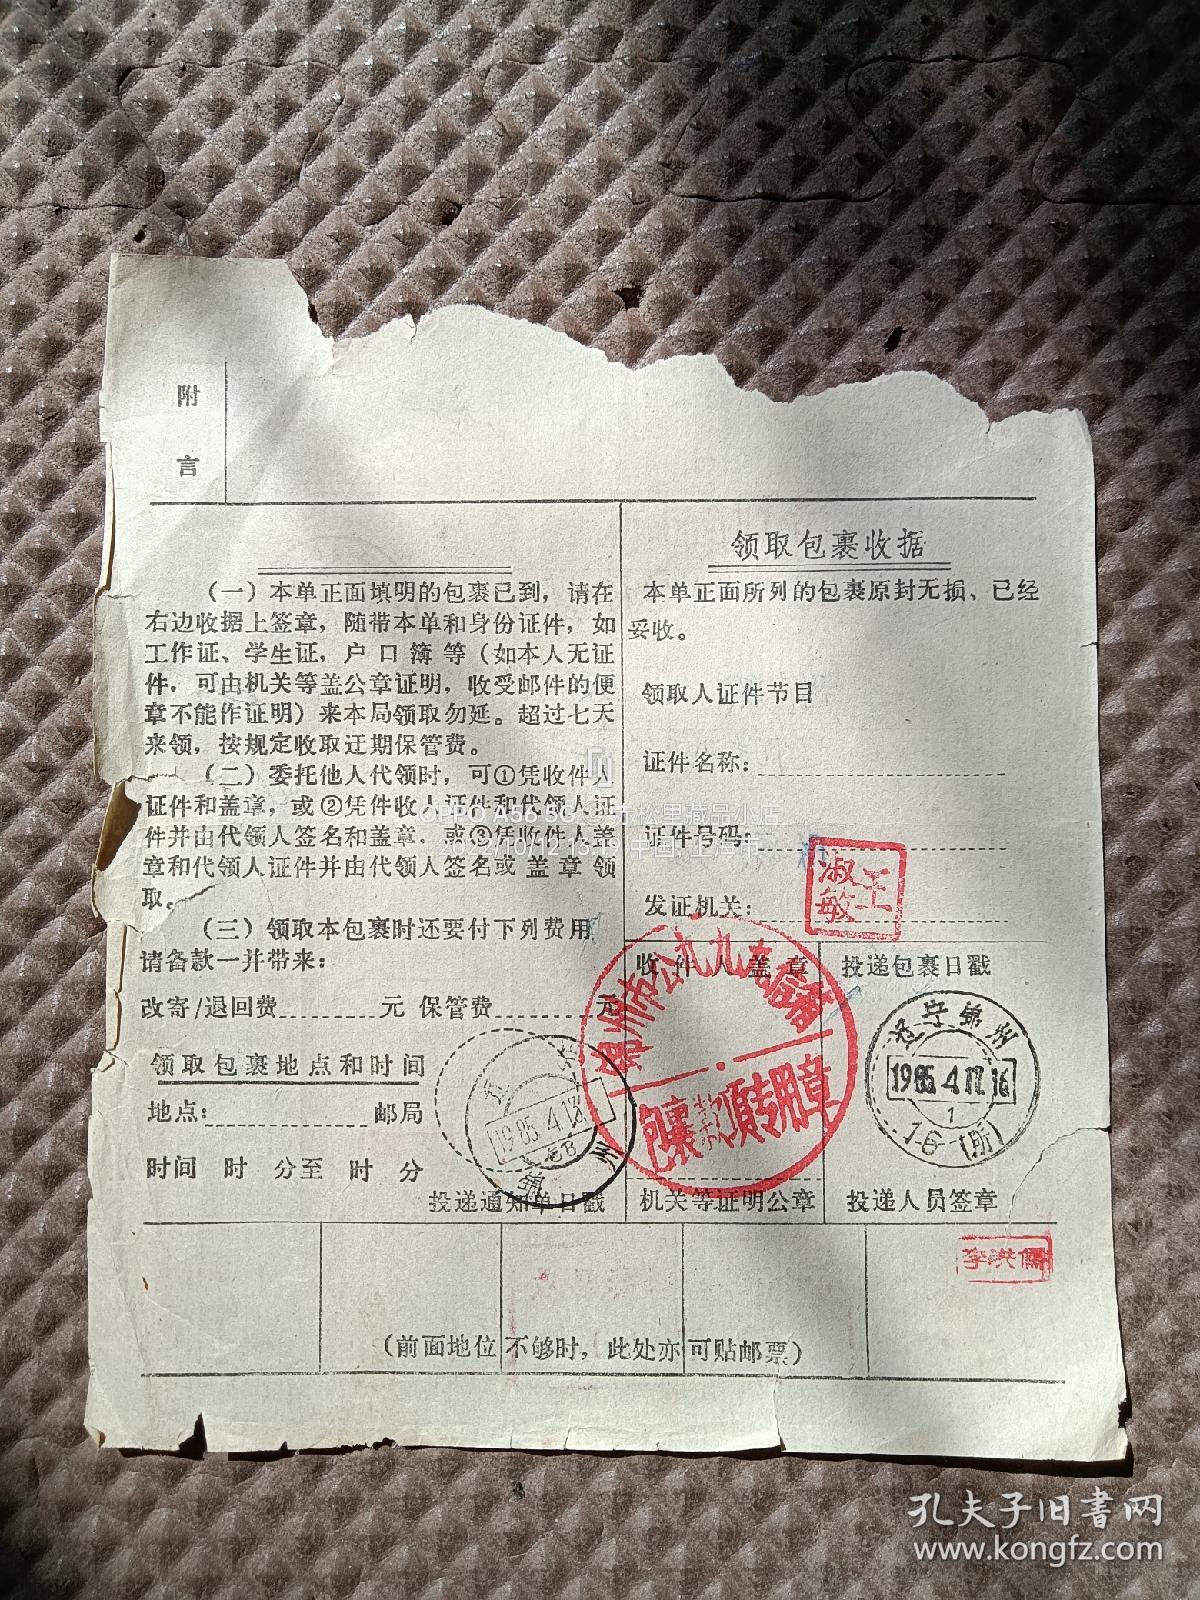 附
言
(一)本单正面填明的包裹已到,请在
右边收据上签章,随带本单和身份证件,如
工作证、学生证,户口簿等(如本人无证
件,可由机关等盖公章证明,收受邮件的便
章不能作证明)来本局领取勿延。超过七天
来领,按规定收取逾期保管费。
(二)委托他人代领时,可①凭收件人
证件和盖章,或②凭件收人证件和代领人证
件并由代领人签名和盖章,或③凭收件人盖
章和代领人证件并由代领人签名或盖章领
取。
(三)领取本包裹时还要付下列费用
请备款一并带来:
改寄/退回费 元 保管费 元
领取包裹地点和时间
地点: 邮局
时间 时 分至 时 分
投递通知单日戳
领取包裹收据
本单正面所列的包裹原封无损、已经
妥收。
领取人证件节目
证件名称:
证件号码:
发证机关:
王淑敏
收件人盖章
包裹款项专用章
机关等证明公章
投递包裹日戳
辽宁锦州
1985.4.17.16
1
1-6(所)
投递人员签章
李洪儒
1985.4.13
锦州
(前面地位不够时,此处亦可贴邮票)
孔夫子旧书网
www.kongfz.com